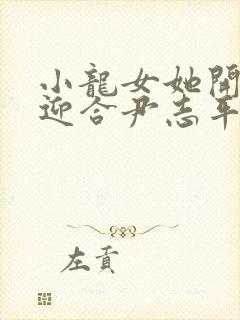 小龍女她開
迎合尹志平
左貢